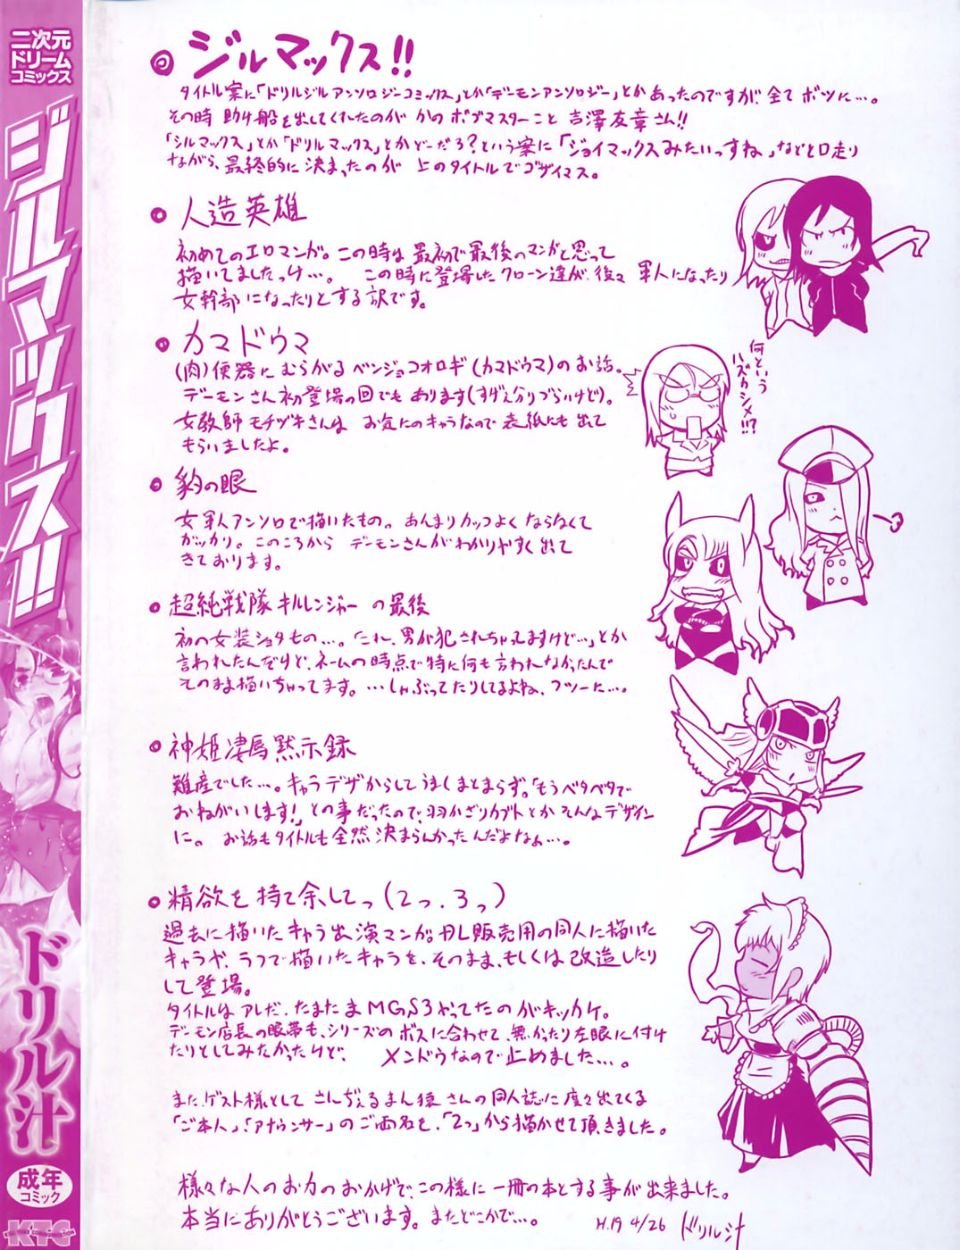 二次元
ドリーム
コミックス
ジルマックス!!
ドリル汁
成年
コミック
KTC
ジルマックス!!
タイトル案に「ドリルジルアンソロジーコミックス」とか「デーモンアンソロジー」とかあったのですが、全てボツに…。
その時 助け船を出してくれたのが かのポプマスターこと 吉澤友章さん!!
「シルマックス」とか「ドリルマックス」とかどーだろ?という案に「ジョイマックスみたいっすね」などと口走り
ながら、最終的に決まったのが 上のタイトルでゴザイマス。
人造英雄
初めてのエロマンガ。この時は最初で最後のマンガと思って
描いてましたっけ…。 この時に登場したクローン達が、後々 軍人になったり
女幹部になったりとする訳です。
カマドウマ
(肉)便器に むらがる ベンジョコオロギ(カマドウマ)のお話。
デーモンさん初登場の回でもあります(すげぇ分りづらいけど)。
女教師モチヅキさんは お気にのキャラなので表紙にも出て
もらいましたよ。
何という
ハズカシメ!!?
豹の眼
女軍人アンソロで描いたもの。あんまりカッコよくならなくて
ガッカリ。このころから デーモンさんがわかりやすく出て
きております。
超純戦隊キルレンジャーの最後
初の女装ショタもの…。「これ、男が犯されちゃってますけど…」とか
言われたんだけど、ネームの時点で特に何も言われなかったんで
そのまま描いちゃってます。…しゃぶってたりしてるよね、フツーに…。
神姫凄辱黙示録
難産でした…。キャラデザからしてうまくまとまらず、「もうベタベタで
おねがいします!」との事だったので、羽かざりカブトとかそんなデザイン
に。 お話もタイトルも全然決まらんかったんだよなぁ…。
精欲を持て余してっ(2っ.3っ)
過去に描いたキャラ出演マンガ。DL販売用の同人に描いた
キャラや、ラフで描いたキャラを、そのまま、もしくは改造したり
して登場。
タイトルはアレだ、たまたまMGS3やってたのがキッカケ。
デーモン店長の眼帯も、シリーズのボスに合わせて、無かったり左眼に付け
たりとしてみたかったけど、 メンドウなので止めました…。
また、ゲスト様として さんぢぇるまん猿さんの同人誌に度々出てくる
「ご本人」、「アナウンサー」のご両名を、「2っ」から描かせて頂きました。
様々な人のお力のおかげで、この様に一冊の本とする事が出来ました。
本当にありがとうございます。またどこかで…。
H.19 4/26 ドリル汁